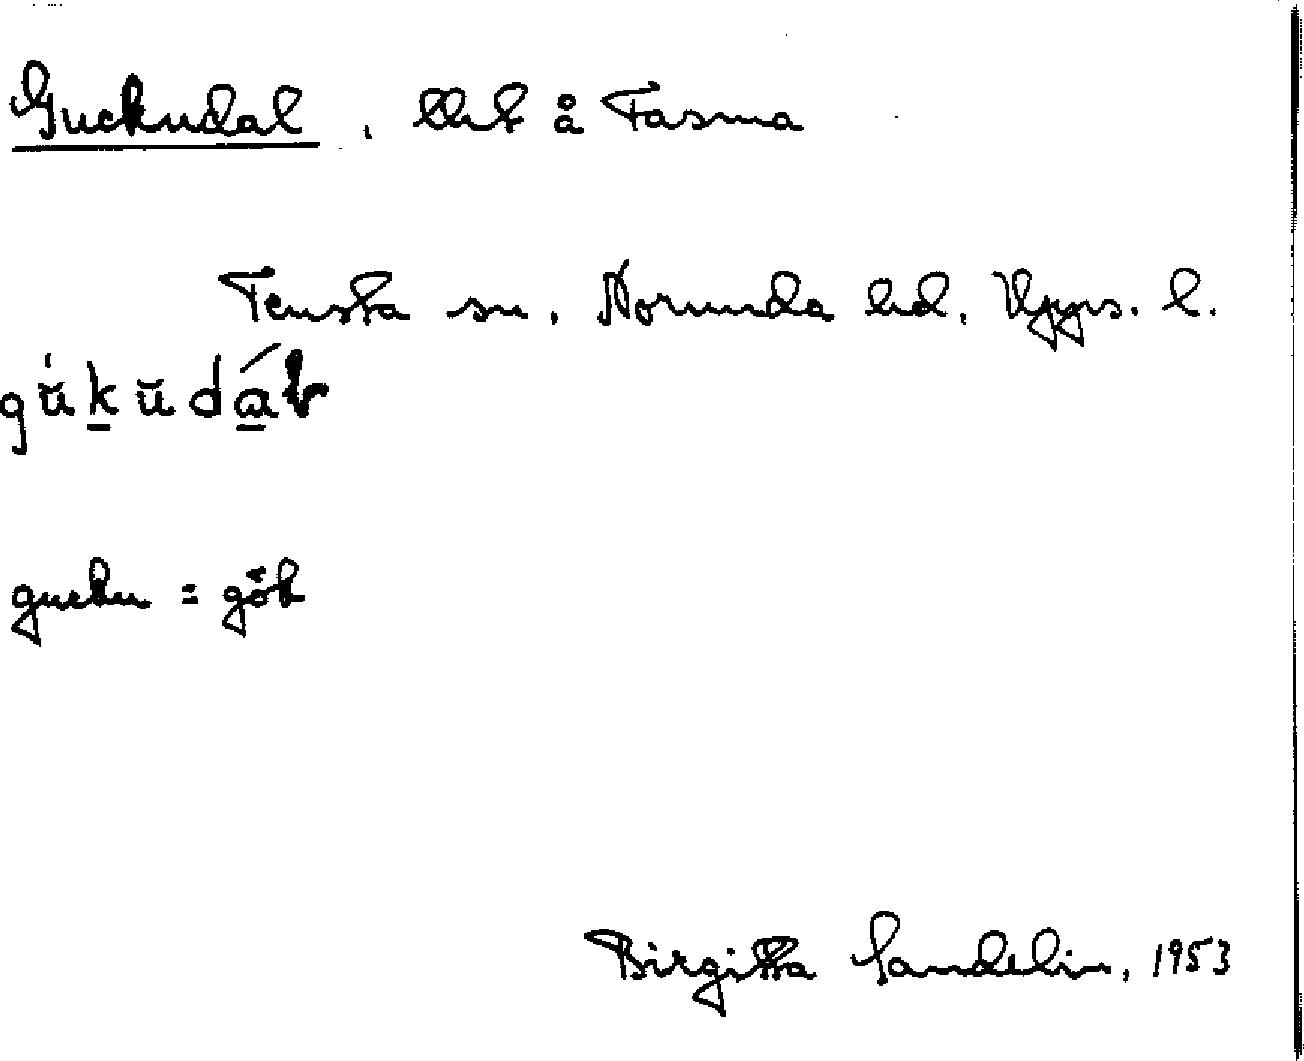 Guckudal, lht å Fasma
Tensta sn, Norunda hd, Upps. l.
gŭ́kŭdál
gucku = gök
Birgitta Sandelin, 1953